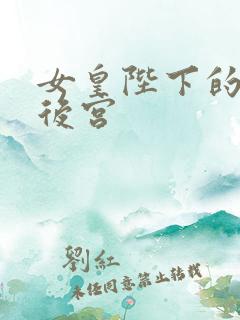 女皇陛下的
後宮
劉紅
未經同意禁止轉載